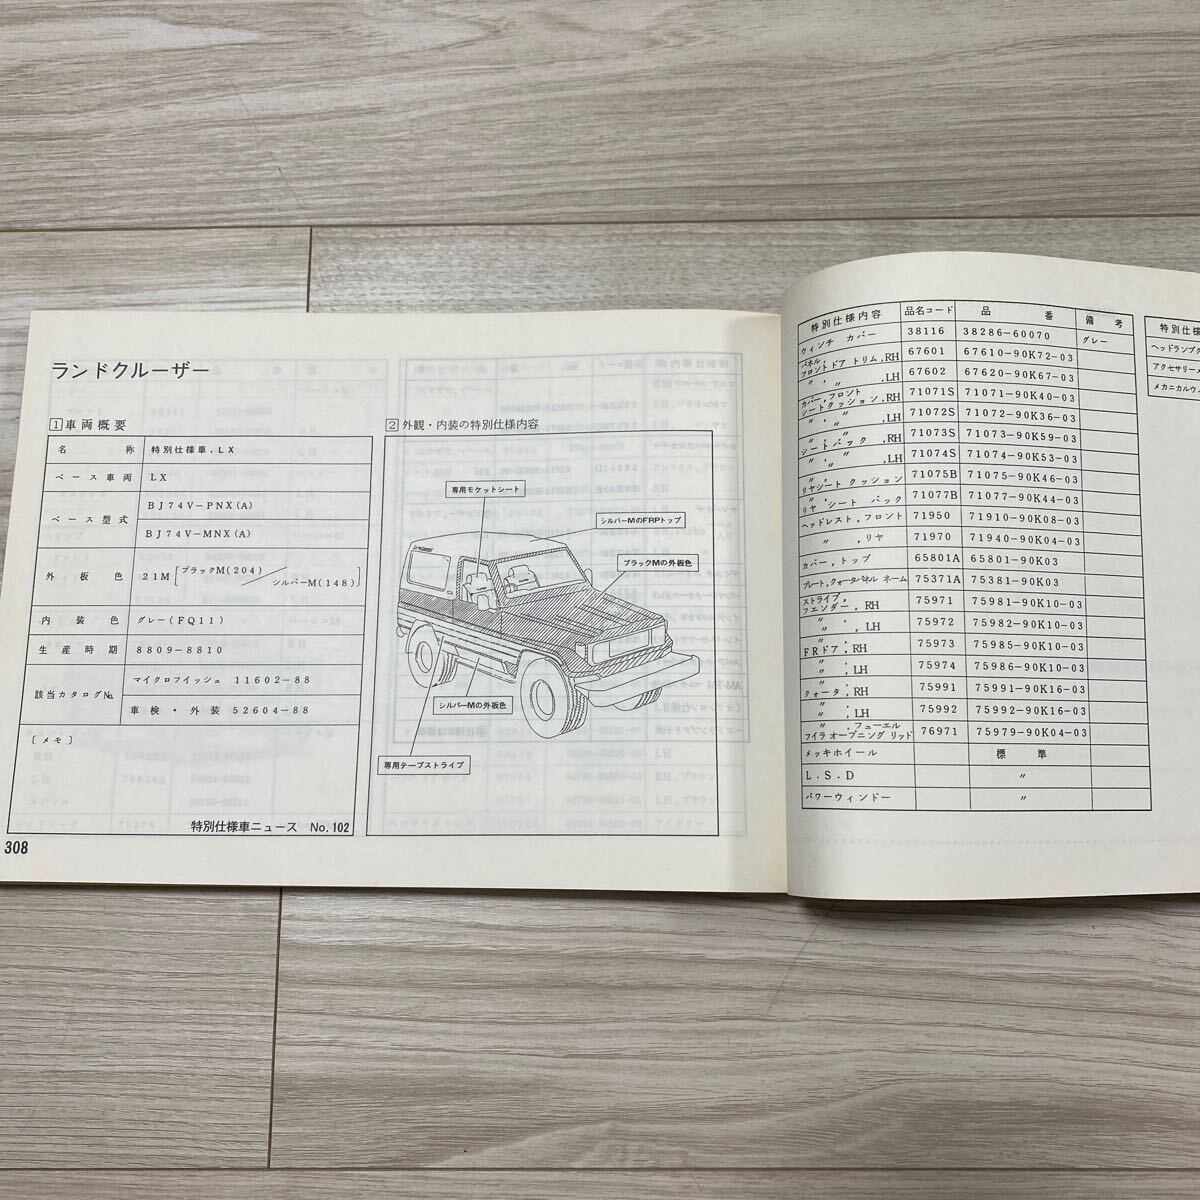 ランドクルーザー
1 車両概要
名称 特別仕様車，LX
ベース車両 LX
ベース型式 BJ74V-PNX(A)
BJ74V-MNX(A)
外板色 21M ブラックM(204)／シルバーM(148)
内装色 グレー(FQ11)
生産時期 8809-8810
該当カタログNo. マイクロフィッシュ 11602-88
車検・外装 52604-88
〔メモ〕
特別仕様車ニュース No.102
308
2 外観・内装の特別仕様内容
専用モケットシート
シルバーMのFRPトップ
ブラックMの外板色
シルバーMの外板色
専用テープストライプ
特別仕様内容 品名コード 品番 備考
ウィンチ カバー 38116 38286-60070 グレー
パネル，
フロントドア トリム，RH 67601 67610-90K72-03
〃 ，〃 ，LH 67602 67620-90K67-03
カバー，フロント
シートクッション，RH 71071S 71071-90K40-03
〃 ，〃 ，LH 71072S 71072-90K36-03
〃 ，〃
シートバック ，RH 71073S 71073-90K59-03
〃 ，〃 ，LH 71074S 71074-90K53-03
リヤシート クッション 71075B 71075-90K46-03
リヤ シート バック 71077B 71077-90K44-03
ヘッドレスト，フロント 71950 71910-90K08-03
〃 ，リヤ 71970 71940-90K04-03
カバー，トップ 65801A 65801-90K03
プレート，クォータパネル ネーム 75371A 75381-90K03
ストライプ，
フェンダー，RH 75971 75981-90K10-03
〃 ，〃 ，LH 75972 75982-90K10-03
〃 ，
FRドア，RH 75973 75985-90K10-03
〃 ，LH 75974 75986-90K10-03
〃 ，
クォータ，RH 75991 75991-90K16-03
〃 ，LH 75992 75992-90K16-03
〃 ，フューエル
フイラ オープニング リッド 76971 75979-90K04-03
メッキホイール 標準
L.S.D 〃
パワーウィンドー 〃
特別仕様
ヘッドランプク
アクセサリーメ
メカニカルウ